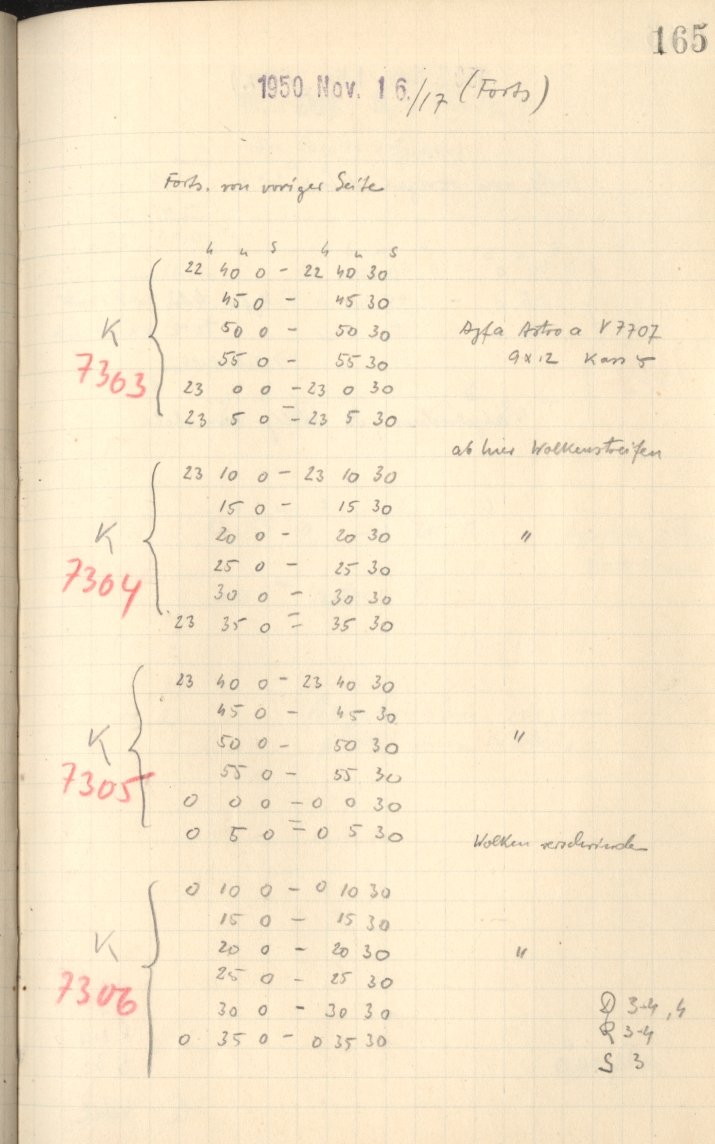 165
1950 Nov. 16./17 (Forts)
Forts. von voriger Seite
h m s h m s
22 40 0 - 22 40 30
45 0 - 45 30
K 50 0 - 50 30 Agfa Astro a V7707
7303 55 0 - 55 30 9x12 Kass 5
23 0 0 - 23 0 30
23 5 0 - 23 5 30
ab hier Wolkenstreifen
23 10 0 - 23 10 30
15 0 - 15 30
K 20 0 - 20 30 "
7304 25 0 - 25 30
30 0 - 30 30
23 35 0 - 35 30
23 40 0 - 23 40 30
45 0 - 45 30
K 50 0 - 50 30 "
7305 55 0 - 55 30
0 0 0 - 0 0 30
0 5 0 - 0 5 30
Wolken verschwinden
0 10 0 - 0 10 30
15 0 - 15 30
K 20 0 - 20 30 "
7306 25 0 - 25 30
30 0 - 30 30 D 3-4, 4
0 35 0 - 0 35 30 R 3-4
S 3